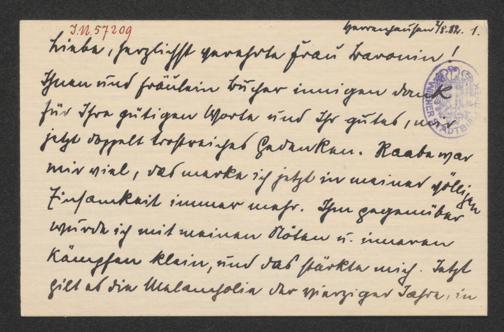 J.N. 57209
Herrenhausen 7/8.82. 1.
Liebe, herzlichst verehrte Frau Baronin!
Ihnen und Fräulein Bucher innigen Dank
für Ihre gütigen Worte und Ihr gutes, mir
jetzt doppelt trostreiches Gedenken. Raabe war
mir viel, das merke ich jetzt in meiner völligen
Einsamkeit immer mehr. Ihm gegenüber
wurde ich mit meinen Nöten u. inneren
Kämpfen klein, und das stärkte mich. Jetzt
gilt es die Melancholie der vierziger Jahre, in